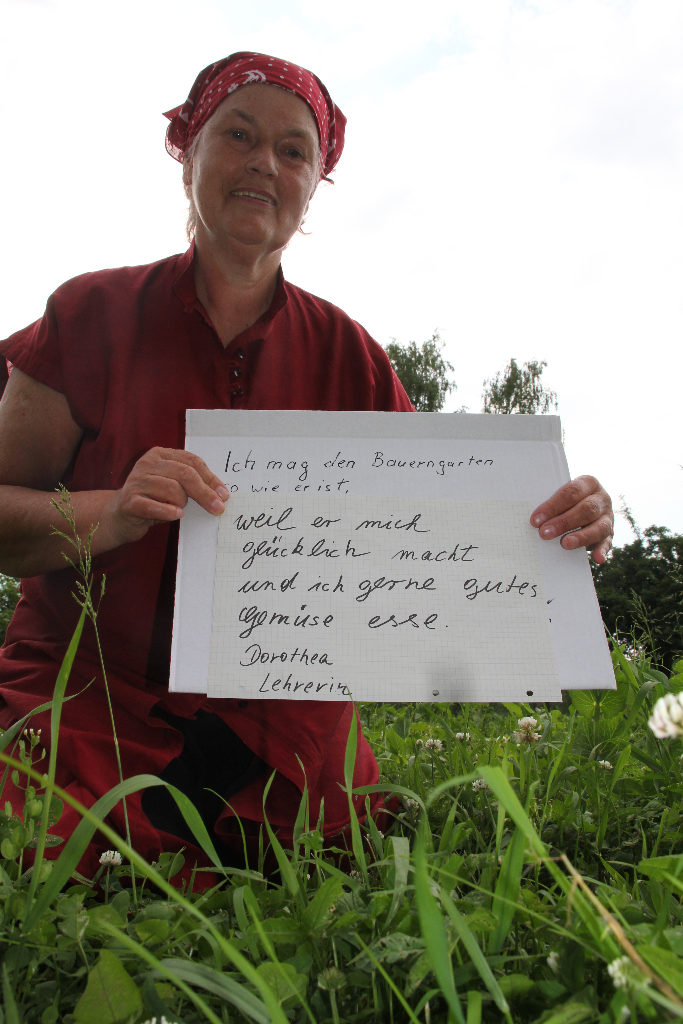 Ich mag den Bauerngarten
so wie er ist,
weil er mich
glücklich macht
und ich gerne gutes
Gemüse esse.
Dorothea
Lehrerin